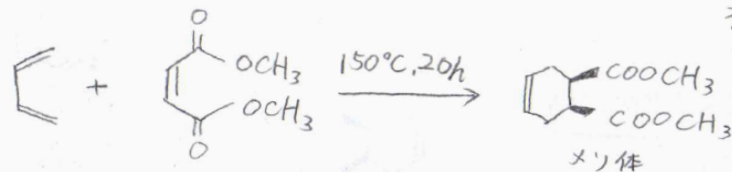 O
OCH3
OCH3
O
+
150℃, 20h
COOCH3
COOCH3
メソ体